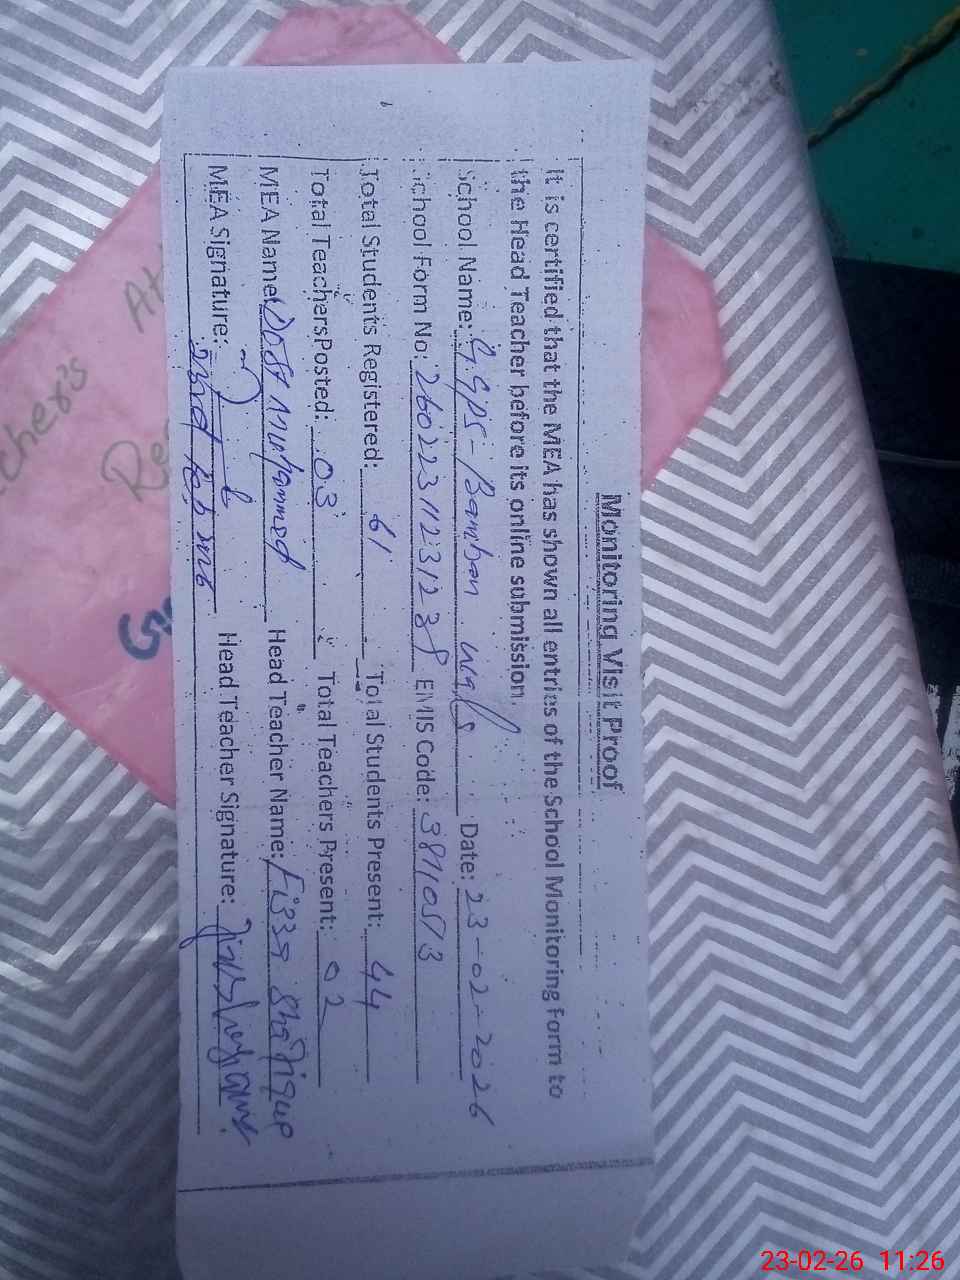 Monitoring Visit Proof
It is certified that the MEA has shown all entries of the School Monitoring Form to
the Head Teacher before its online submission.
School Name: G.GPS-Bamban Wala Date: 23-02-2026
School Form No: EMIS Code: 38110513
Total Students Registered: 61 Total Students Present: 44
Total Teachers Posted: 03 Total Teachers Present: 02
MEA Name: Dost Muhammad Head Teacher Name: Fizza Shafique
MEA Signature: Head Teacher Signature:
23rd Feb
23-02-26 11:26